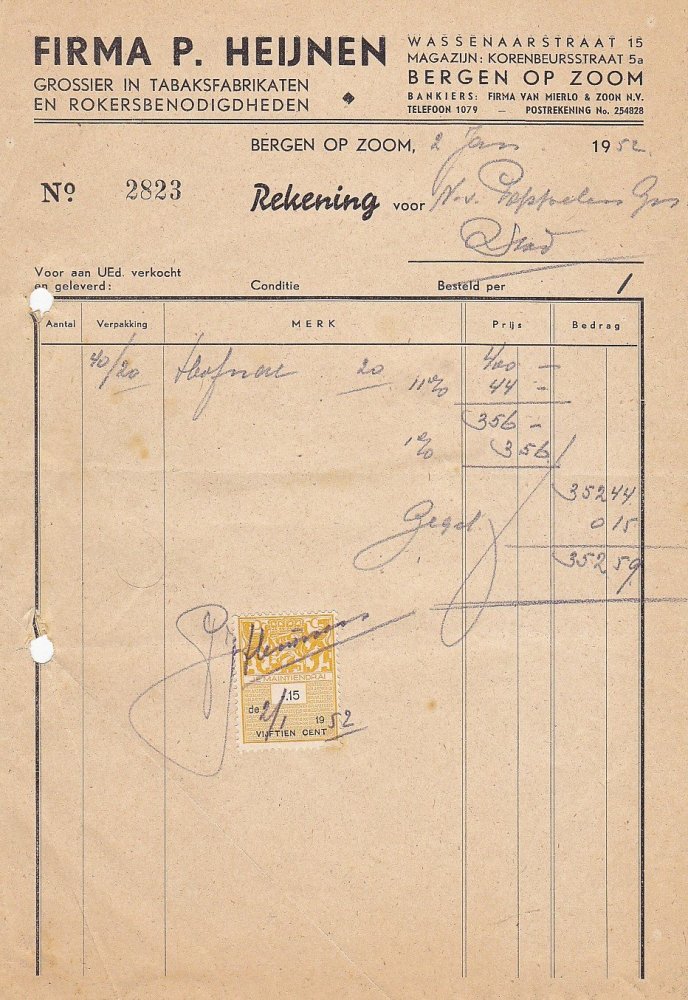 FIRMA P. HEIJNEN
GROSSIER IN TABAKSFABRIKATEN
EN ROKERSBENODIGDHEDEN
WASSENAARSTRAAT 15
MAGAZIJN: KORENBEURSSTRAAT 5a
BERGEN OP ZOOM
BANKIERS: FIRMA VAN MIERLO & ZOON N.V.
TELEFOON 1079 — POSTREKENING No. 254828
BERGEN OP ZOOM, 2 Jan 1952.
No. 2823 Rekening voor N.V.
Stad
Voor aan UEd. verkocht
en geleverd: Conditie Besteld per /
Aantal Verpakking MERK Prijs Bedrag
40/20 Hofnar 20 400 —
11% 44 -
356 -
1% 3 56
352 44
Zegel 0 15
352 59
JE MAINTIENDRAI
.15
de 2/1 1952
VIJFTIEN CENT